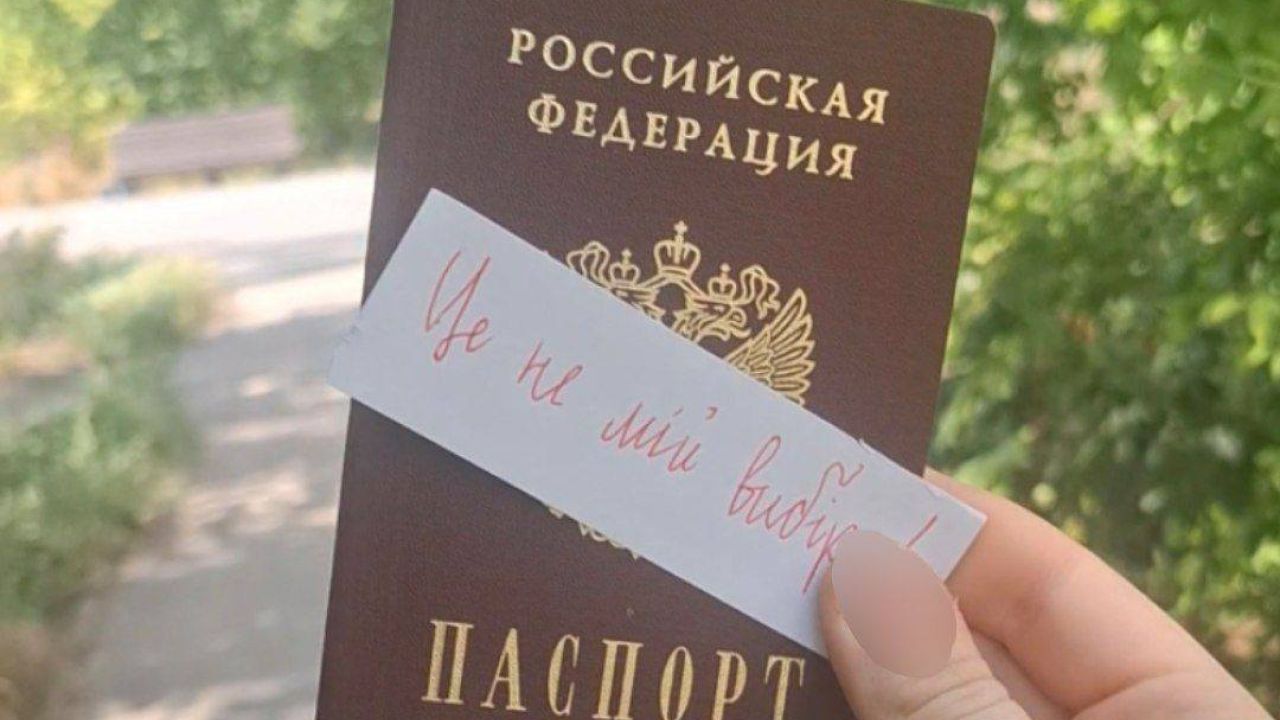 РОССИЙСКАЯ
ФЕДЕРАЦИЯ
Це не мій вибір!
ПАСПОРТ